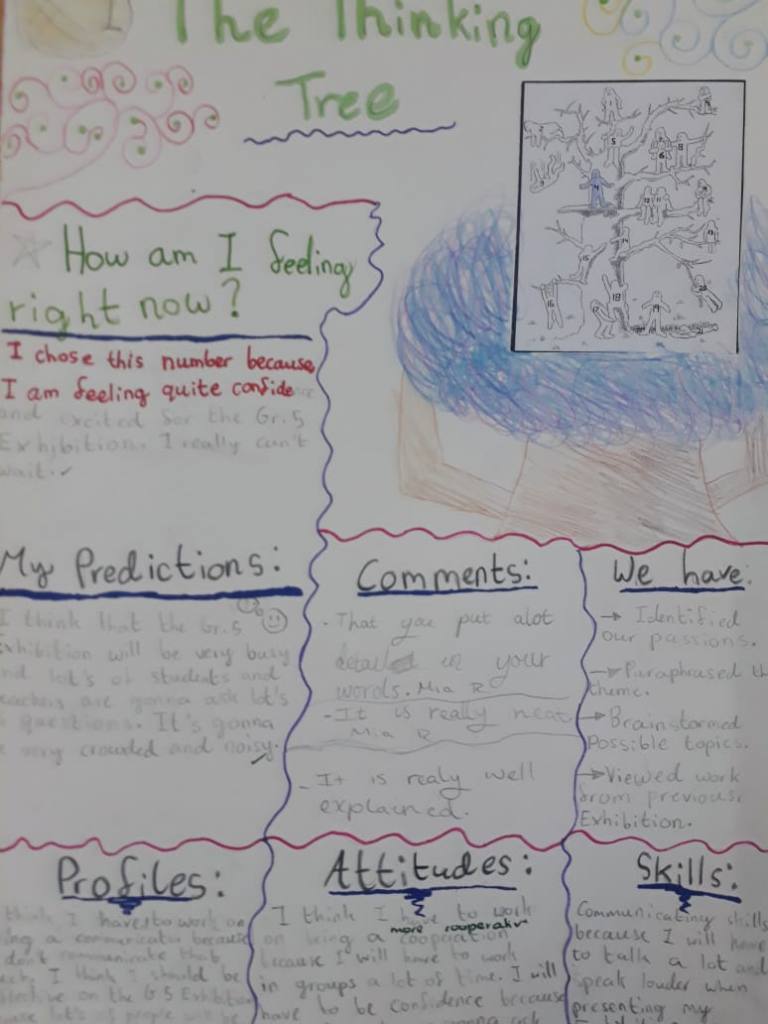 The Thinking
Tree
How am I feeling
right now?
I chose this number because
I am feeling quite confide
and excited for the Gr.5
Exhibition. I really can't
wait.
My Predictions:
I think that the Gr.5
Exhibition will be very busy
and lot's of students and
teachers are gonna ask lot's
questions. It's gonna
very crowded and noisy.
Comments:
- That you put alot
detail in your
words. Mia R
- It is really neat
Mia R
- It is realy well
explained.
We have:
→ Identified
our passions.
→ Paraphrased th
theme.
→ Brainstormed
Possible topics.
→ Viewed work
from previous
Exhibition.
Profiles:
think I have to work on
ing a communicator because
don't communicate that
I think I should be
on the G.5 Exhibition
lot's of people will be
Attitudes:
I think I have to work
more cooperative
on being a cooperation
because I will have to work
in groups a lot of time. I will
have to be confidence because
gonna ask
Skills:
Communicating skills
because I will have
to talk a lot and
speak louder when
presenting my
5
6
8
9
10
11
14
15
16
18
19